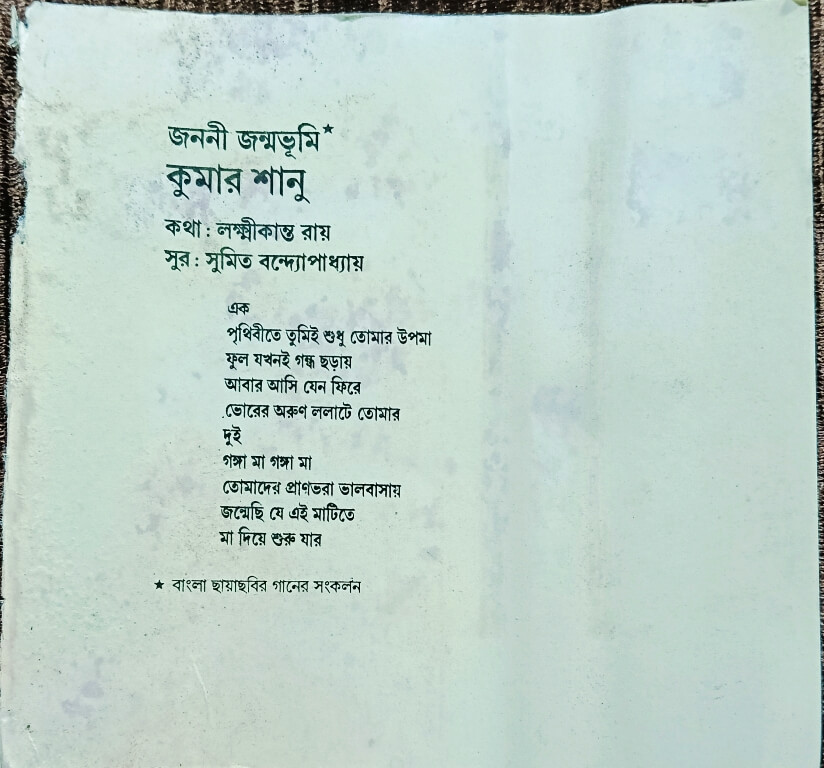 জননী জন্মভূমি★
কুমার শানু
কথা : লক্ষ্মীকান্ত রায়
সুর : সুমিত বন্দ্যোপাধ্যায়
এক
পৃথিবীতে তুমিই শুধু তোমার উপমা
ফুল যখনই গন্ধ ছড়ায়
আবার আসি যেন ফিরে
ভোরের অরুণ ললাটে তোমার
দুই
গঙ্গা মা গঙ্গা মা
তোমাদের প্রাণভরা ভালবাসায়
জন্মেছি যে এই মাটিতে
মা দিয়ে শুরু যার
★ বাংলা ছায়াছবির গানের সংকলন